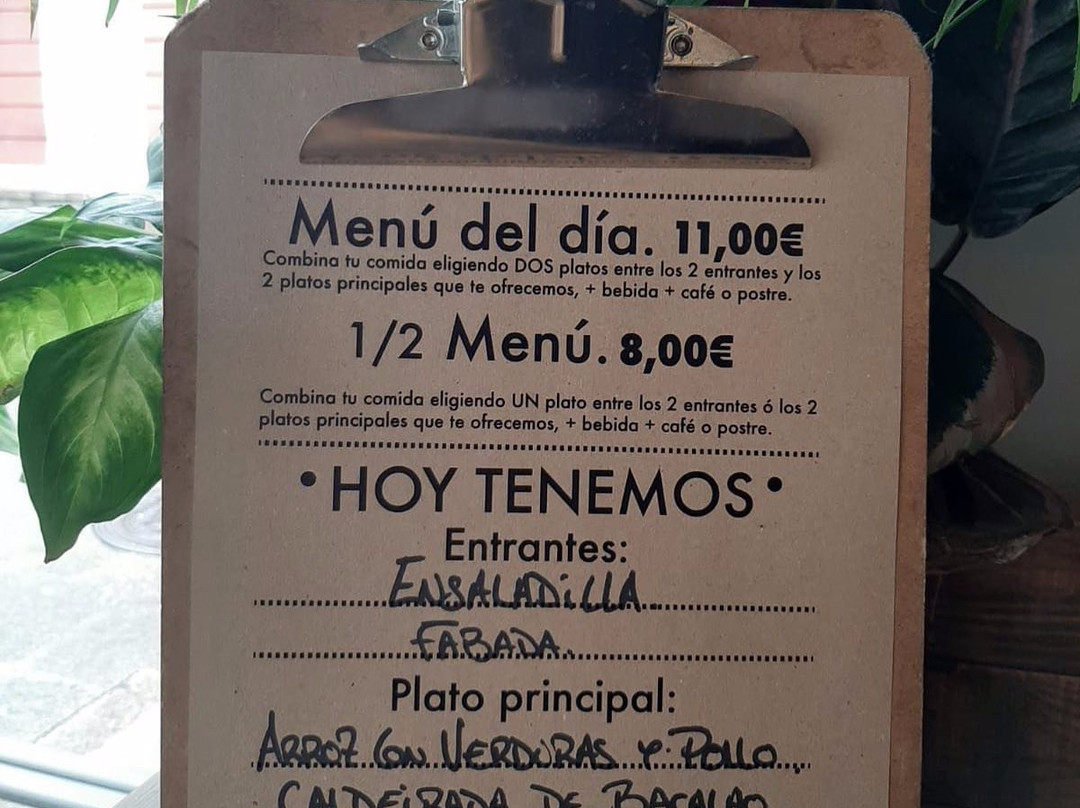 Menú del día. 11,00€
Combina tu comida eligiendo DOS platos entre los 2 entrantes y los
2 platos principales que te ofrecemos, + bebida + café o postre.
1/2 Menú. 8,00€
Combina tu comida eligiendo UN plato entre los 2 entrantes ó los 2
platos principales que te ofrecemos, + bebida + café o postre.
• HOY TENEMOS •
Entrantes:
ENSALADiLLA
FABADA.
Plato principal:
ARROZ CON VERDURAS Y POLLO.
CALDEIRADA DE BACALAO